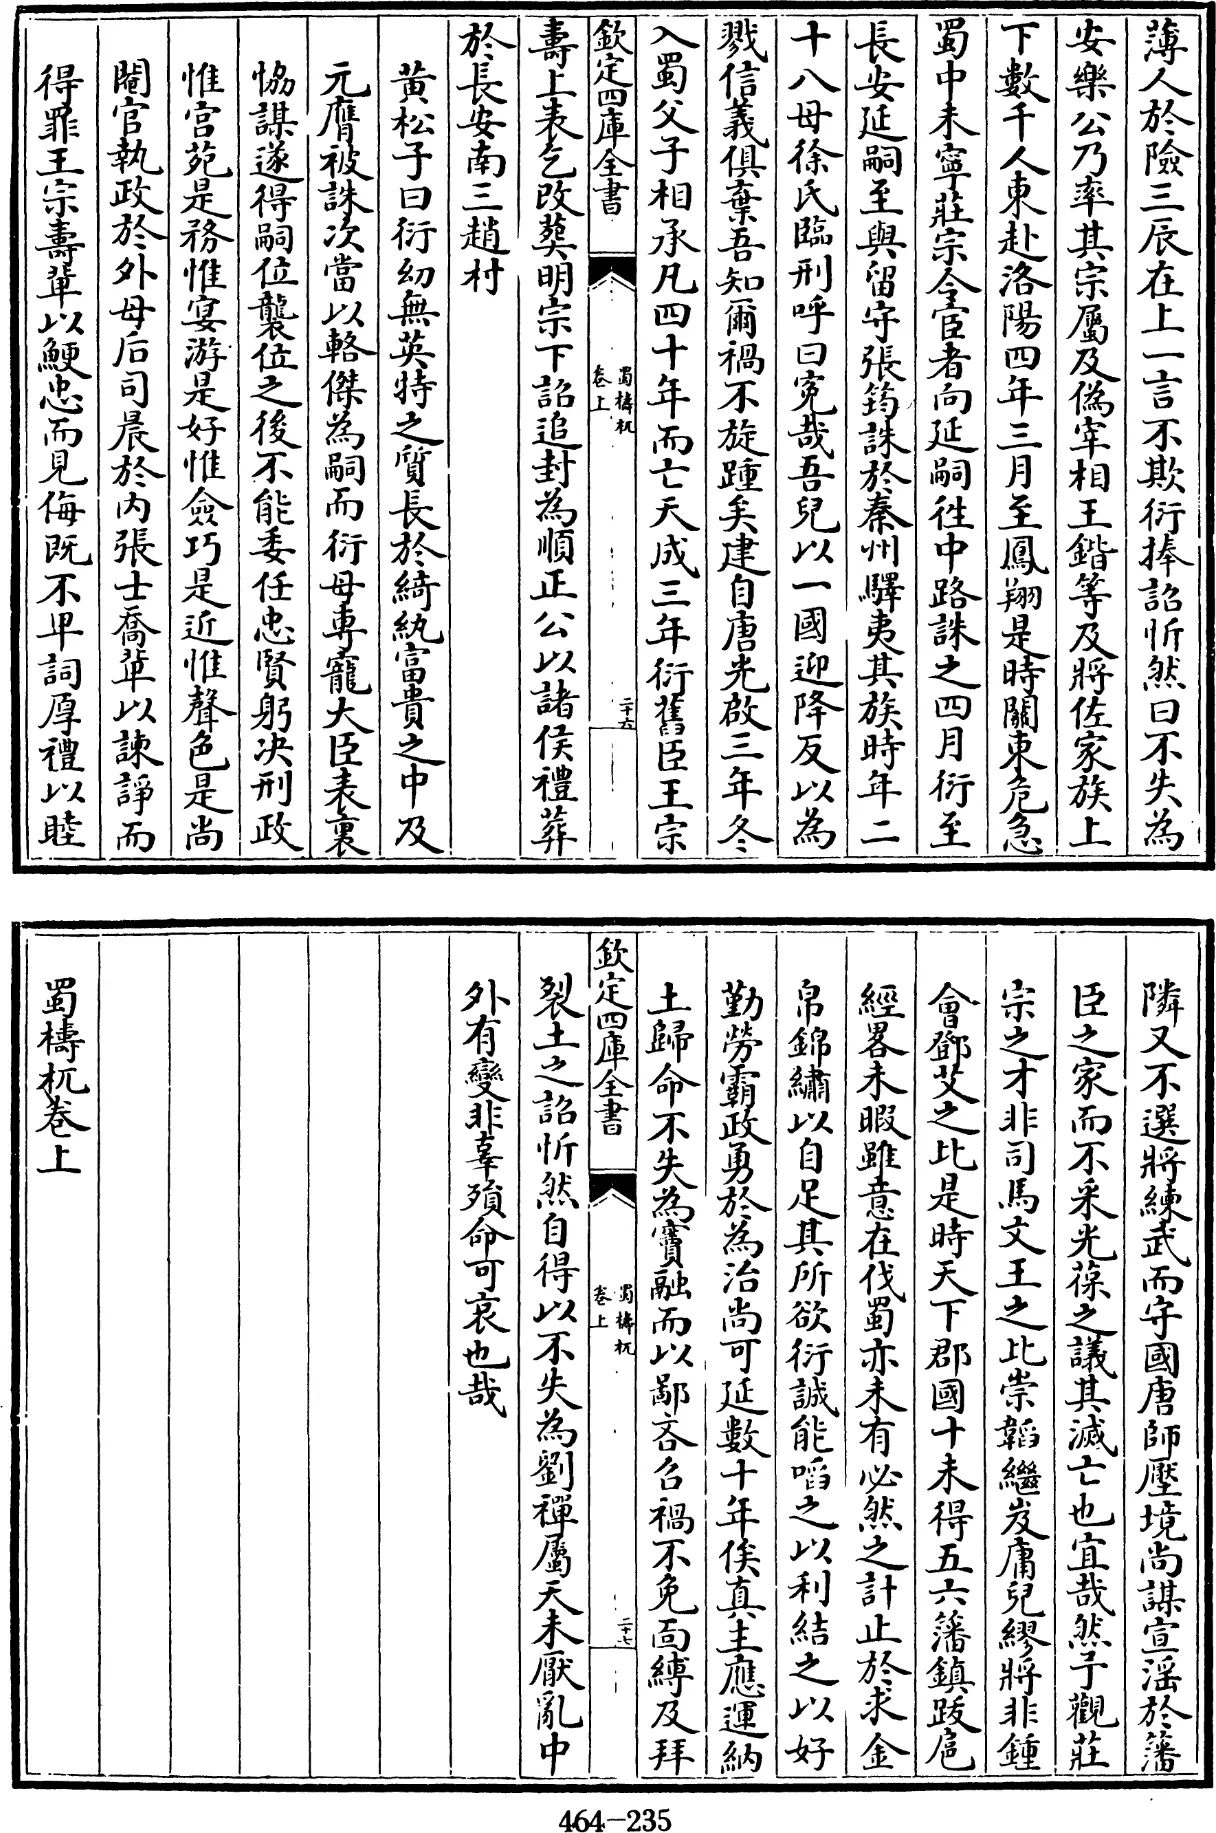 薄人於險三辰在上一言不欺衍捧詔忻然曰不失為
安樂公乃率其宗屬及偽宰相王鍇等及將佐家族上
下數千人東赴洛陽四年三月至鳳翔是時關東危急
蜀中未寧莊宗令宦者向延嗣往中路誅之四月衍至
長安延嗣至與留守張筠誅於秦州驛夷其族時年二
十八母徐氏臨刑呼曰冤哉吾兒以一國迎降反以為
戮信義俱棄吾知爾禍不旋踵矣建自唐光啟三年冬
入蜀父子相承凡四十年而亡天成三年衍舊臣王宗
欽定四庫全書
蜀檮杌
卷上
二十六
壽上表乞改葬明宗下詔追封為順正公以諸侯禮葬
於長安南三趙村
黄松子曰衍幼無英特之質長於綺紈富貴之中及
元膺被誅次當以輅傑為嗣而衍母專寵大臣表裏
恊謀遂得嗣位襲位之後不能委任忠賢躬决刑政
惟宫苑是務惟宴游是好惟儉巧是近惟聲色是尚
閹官執政於外母后司晨於内張士喬輩以諫諍而
得罪王宗壽輩以鯁忠而見侮既不卑詞厚禮以睦
隣又不選將練武而守國唐師壓境尚謀宣淫於藩
臣之家而不采光葆之議其滅亡也宜哉然予觀莊
宗之才非司馬文王之比崇韜繼岌庸兒繆將非鍾
會鄧艾之比是時天下郡國十未得五六藩鎮跋扈
經畧未暇雖意在伐蜀亦未有必然之計止於求金
帛錦繡以自足其所欲衍誠能啗之以利結之以好
勤勞霸政勇於為治尚可延數十年俟真主應運納
土歸命不失為竇融而以鄙吝召禍不免靣縛及拜
欽定四庫全書
蜀檮杌
卷上
二十七
裂土之詔忻然自得以不失為劉禪屬天未厭亂中
外有變非辜殞命可哀也哉
蜀檮杌卷上
464-235